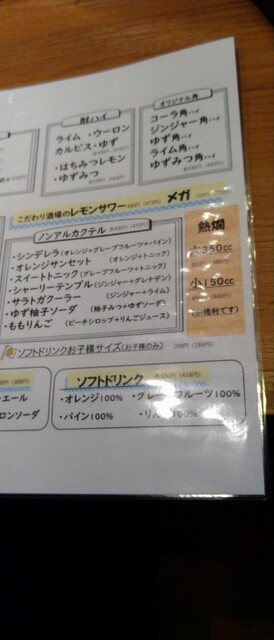 酎ハイ
ライム ・ウーロン
カルピス・ゆず
・はちみつレモン
・ゆずみつ
オリジナル角
コーラ角ハイ
ジンジャー角ハイ
ゆず角ハイ
ライム角ハイ
ゆずみつ角ハイ
こだわり酒場のレモンサワー
メガ
ノンアルカクテル
・シンデレラ(オレンジ+グレープフルーツ+パイン)
・オレンジサンセット (オレンジ+トニック)
・スイートトニック(グレープフルーツ+トニック)
・シャーリーテンプル(ジンジャー+グレナデン)
・サラトガクーラー (ジンジャー+ライム)
・ゆず柚子ソーダ (柚子みつ+ゆずソーダ)
・ももりんご (ピーチシロップ+りんごジュース)
熱燗
大350cc
小150cc
ソフトドリンクお子様サイズ(お子様のみ)
エール
ロンソーダ
ソフトドリンク
・オレンジ100% ・グレープフルーツ100%
・パイン100% ・りんご100%